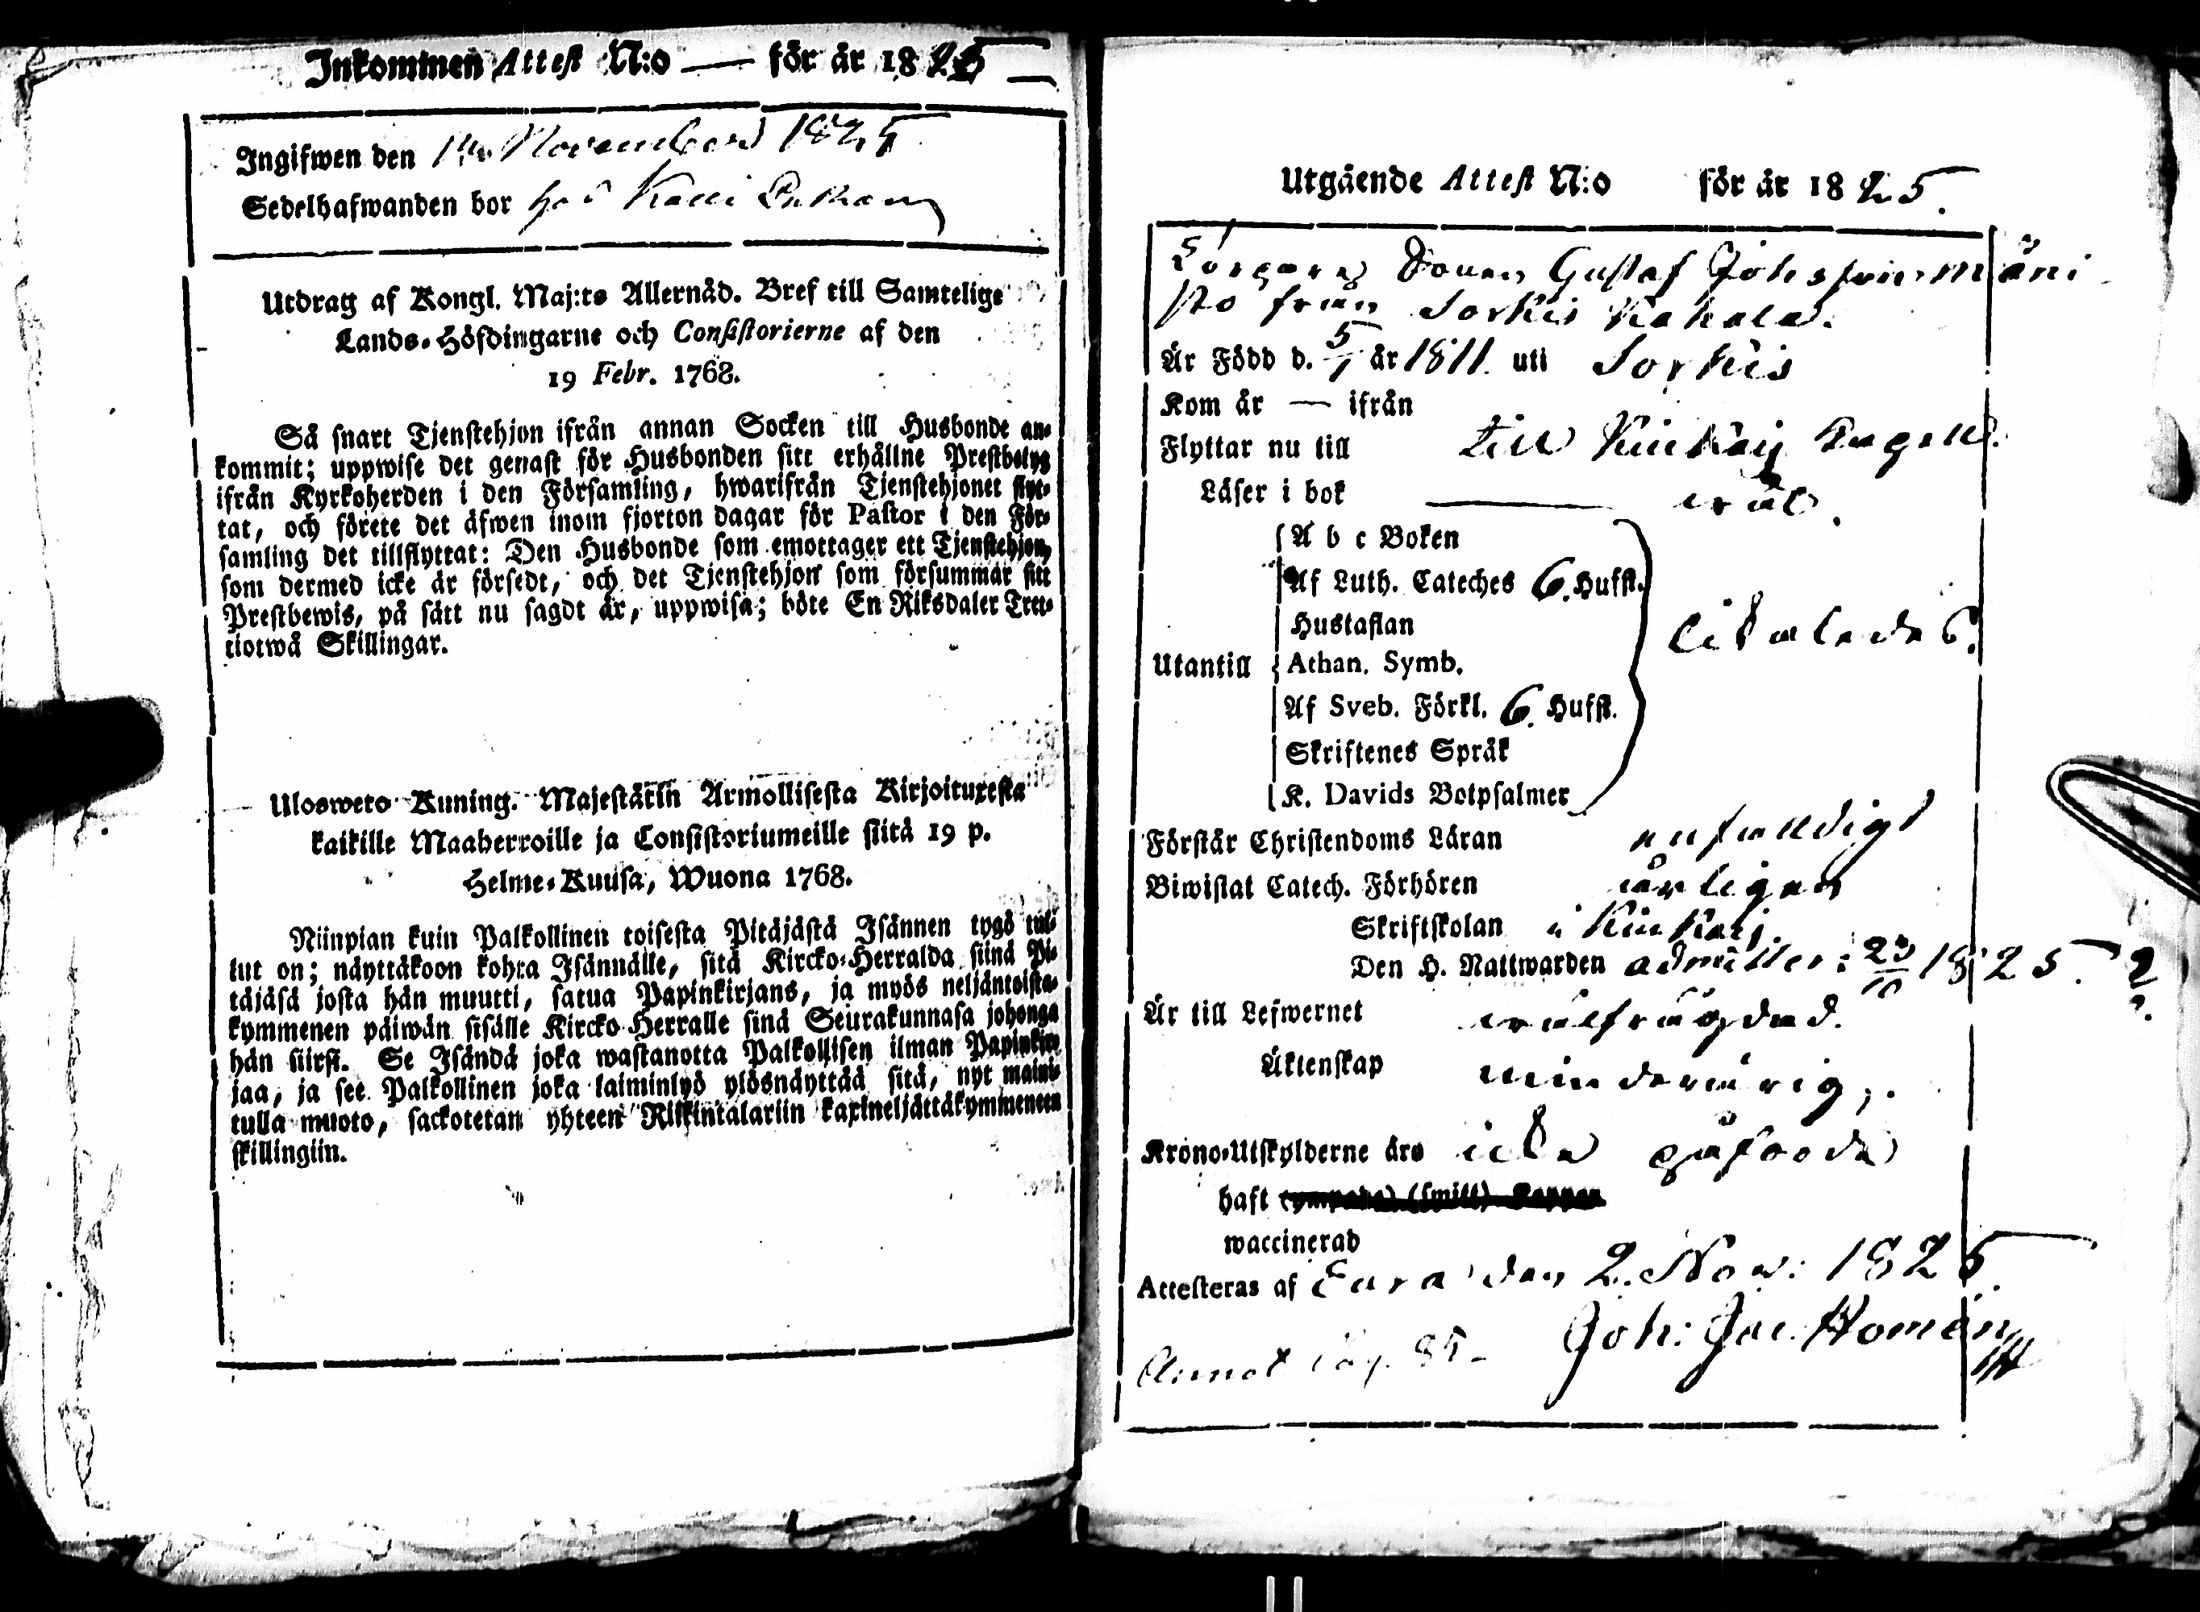 Inkommen Attest N:o — för år 1825
Ingifwen den November 1825
Sedelhafwanden bor hos
Utdrag af Kongl. Maj:ts Allernåd. Bref till Samtelige
Lands-Höfdingarne och Consistorierne af den
19 Febr. 1768.
Så snart Tjenstehjon ifrån annan Socken till Husbonde an-
kommit; uppwise det genast för Husbonden sitt erhållne Prestbetyg
ifrån Kyrkoherden i den Församling, hwarifrån Tjenstehjonet flyt-
tat, och förete det äfwen inom fjorton dagar för Pastor i den För-
samling det tillflyttat: Den Husbonde som emottager ett Tjenstehjon,
som dermed icke är försedt, och det Tjenstehjon som försummar sitt
Prestbewis, på sätt nu sagdt är, uppwisa; böte En Riksdaler Tret-
tiotwå Skillingar.
Ulosweto Kuning. Majestätin Armollisesta Kirjoituxesta
kaikille Maaherroille ja Consistoriumeille siitä 19 p.
Helme-Kuusa, Wuona 1768.
Niinpian kuin Palkollinen toisesta Pitäjästä Isännen tygö tul-
lut on; näyttäkoon kohta Isännälle, sitä Kircko-Herralda siinä Pi-
täjäsä josta hän muutti, saatua Papinkirjans, ja myös neljäntoista-
kymmenen päiwän sisälle Kircko-Herralle sinä Seurakunnasa johonga
hän siirsi. Se Isändä joka wastanotta Palkollisen ilman Papinkir-
jaa, ja see Palkollinen joka laiminlyö ylösnäyttää sitä, nyt maini-
tulla muoto, sackotetan yhteen Riikintalariin kaxineljättäkymmeneen
skillingiin.
Utgående Attest N:o för år 1825.
Gustaf Johsson
från Sorkis
Är Född d. 5/1 år 1811. uti Sorkis
Kom år — ifrån
Flyttar nu till till Kiukais
Läser i bok — wäl.
A b c Boken
Af Luth. Cateches 6. Hufst.
Hustaflan
Utantill Athan. Symb.
likaledes.
Af Sveb. Förkl. 6. Hufst.
Skriftenes Språk
K. Davids Botpsalmer
Förstår Christendoms Läran enfalldigt
Biwistat Catech. Förhören årligen
Skriftskolan i Kiukais
Den H. Nattwarden admitter: 23/10 1825.
Är till Lefwernet wälfrägdad.
Äktenskap minderårig.
Krono-Utskylderne äro icke påförde
haft
waccinerad
Attesteras af Eura den 2. Nov: 1825.
Joh: Jac. Homén
Annot pag. 85